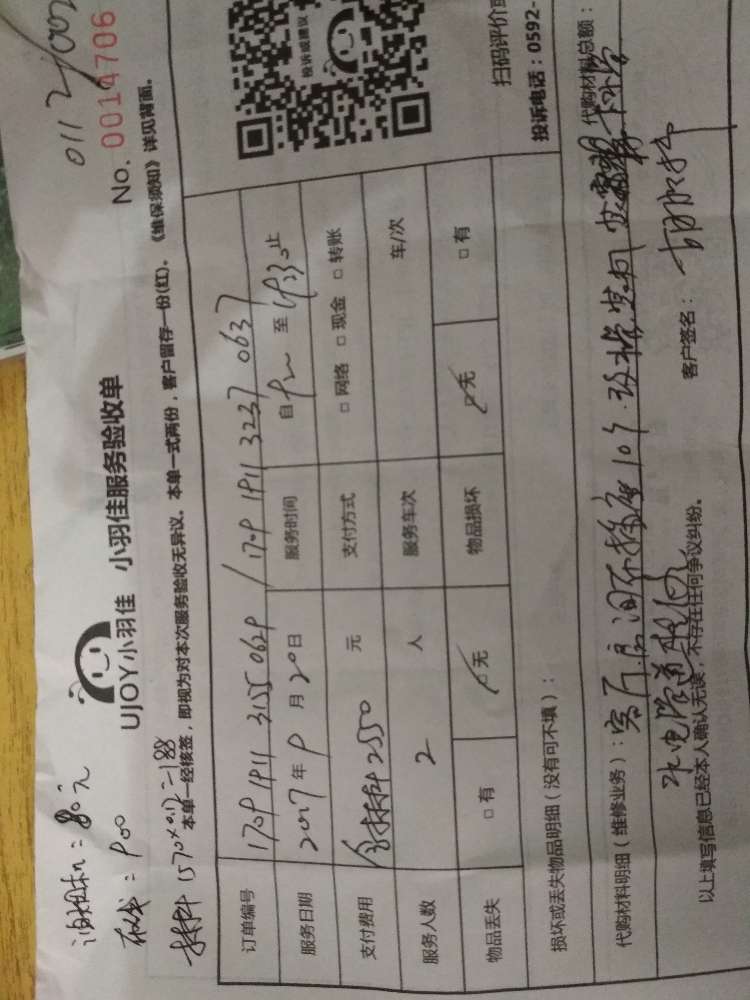 0112
No. 0014706
= 80元
= 900
UJOY小羽佳 小羽佳服务验收单
材料 1570×0.12=188
本单一经核签，即视为对本次服务验收无异议。本单一式两份，客户留存一份(红)。《维保须知》详见背面。
投诉或建议
扫码评价或
投诉电话：0592-
订单编号 1709 1911 3155 0629 / 1709 1911 3237 0637
服务日期 2017年9月20日 服务时间 自 至 止
支付费用 含材料2550 元 支付方式 □ 网络 □ 现金 □ 转账
服务人数 2 人 服务车次 车/次
物品丢失 □ 有 无 物品损坏 无 □ 有
损坏或丢失物品明细（没有可不填）：
代购材料明细（维修业务）： 代购材料总额：
水电
以上填写信息已经本人确认无误，不存在任何争议纠纷。 客户签名：